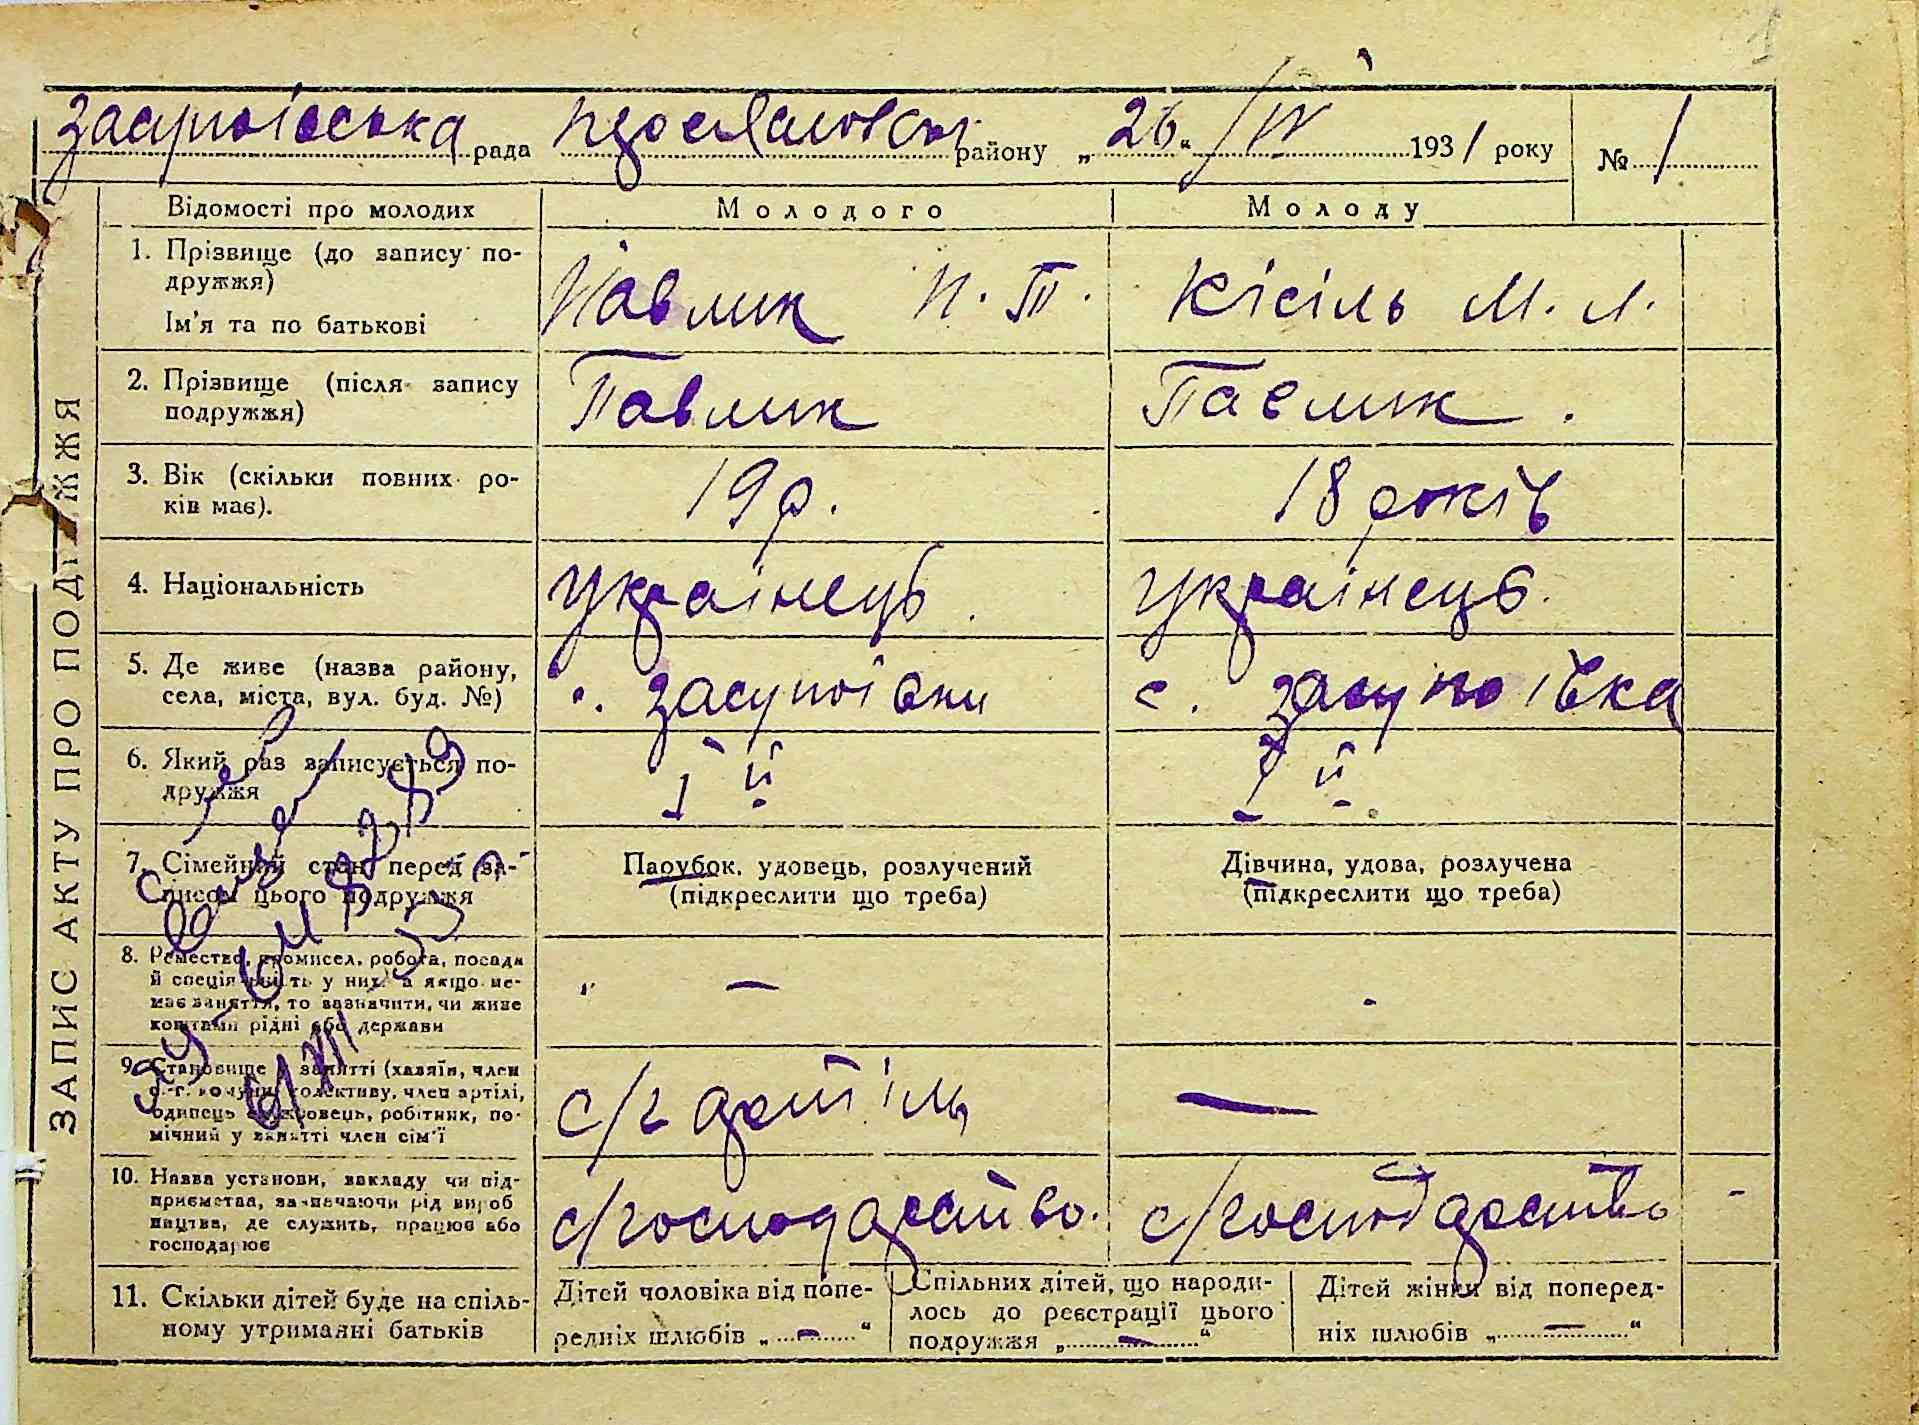 1
Засупоївська рада району „26“ /IV 1931 року № 1
ЗАПИС АКТУ ПРО ПОДРУЖЖЯ
Відомості про молодих Молодого Молоду
1. Прізвище (до запису по-
дружжя)
Ім'я та по батькові
Павлик П. Т. Кісіль М. Л.
2. Прізвище (після запису
подружжя)
Павлик Павлик.
3. Вік (скільки повних ро-
ків має).
19 р. 18 років
4. Національність
Українець Українець.
5. Де живе (назва району,
села, міста, вул. буд. №)
с. Засупоївки с. Засупоївка
6. Який раз записується по-
дружжя
І й І й
7. Сімейний стан перед за-
писом цього подружжя
Парубок, удовець, розлучений
(підкреслити що треба)
Дівчина, удова, розлучена
(підкреслити що треба)
8. Ремество, промисел, робота, посада
й спеціяльність у них, а якщо не-
має заняття, то зазначити, чи живе
коштами рідні або держави
" — -
9. Становище в занятті (хазяїн, член
с.-г. комуни, колективу, член артілі,
одинець, службовець, робітник, по-
мічний у занятті член сім'ї
с/г артіль —
10. Назва установи, закладу чи під-
приємства, зазначаючи рід вироб
ництва, де служить, працює або
господарює
с/господарство. с/господарство -
11. Скільки дітей буде на спіль-
ному утриманні батьків
Дітей чоловіка від попе-
редніх шлюбів „—“
Спільних дітей, що народи-
лось до реєстрації цього
подружжя „—“
Дітей жінки від поперед-
ніх шлюбів „—“